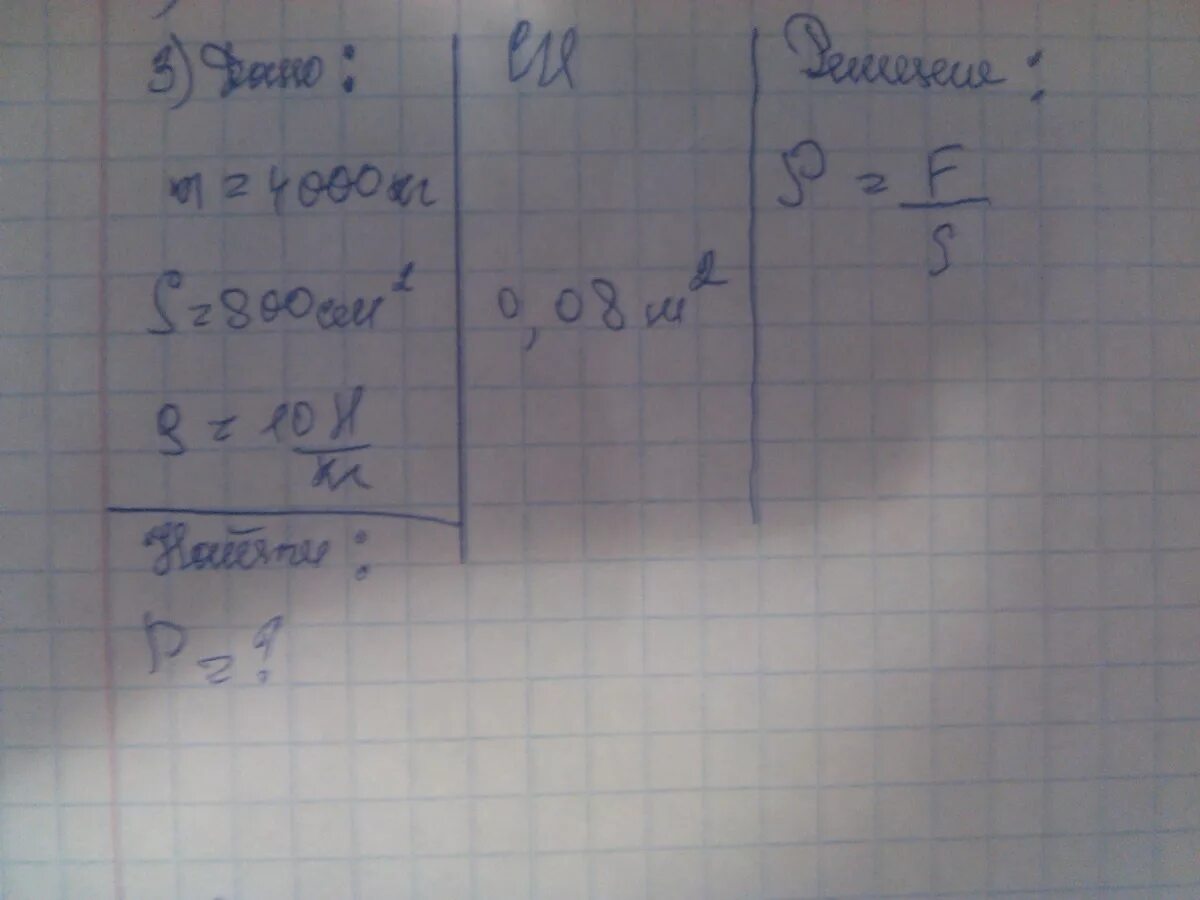 3) Дано:
m = 4000кг
S = 800см²
g = 10 Н/кг
Найти:
P = ?
СИ
0,08 м²
Решение:
P = F/S